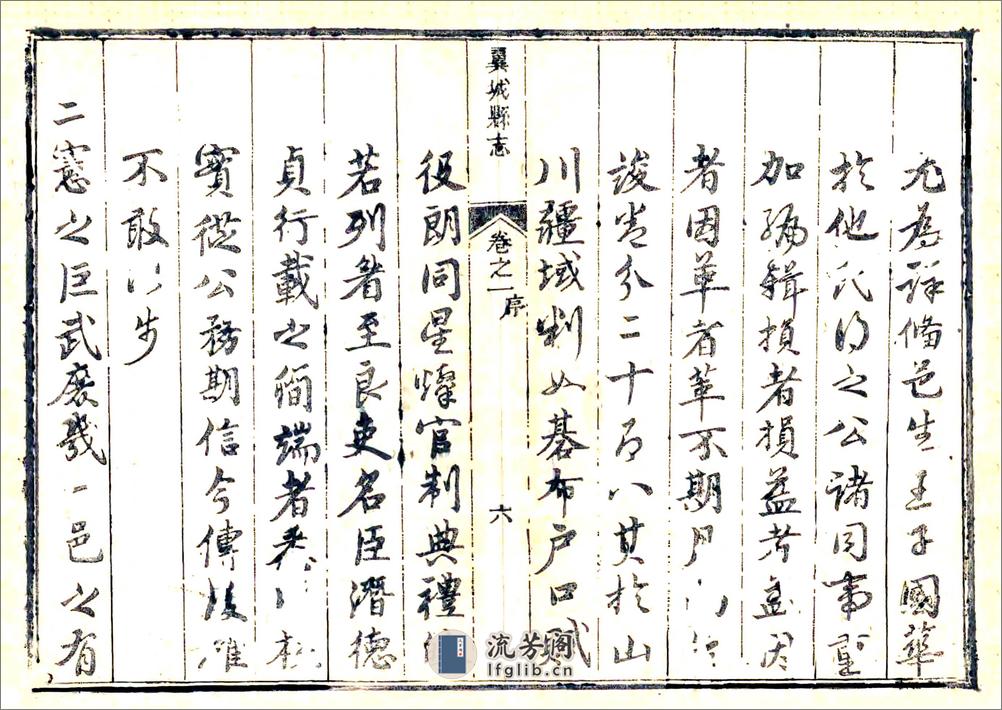 尤為詳備邑生王子國華
於他氏得之公諸同事重
加編輯損者損益者益因
者因革者革不期月
竣卷分二十有八其於山
川疆域判如碁布戶口賦
翼城縣志
卷之一
序
六
役朗同星燦官制典禮
若列至良吏名臣潛德
貞行載之簡端者悉核
實從公務期信今傳後雖
不敢以步
二憲之巨武庶幾一邑之有
流芳阁
lfglib.cn